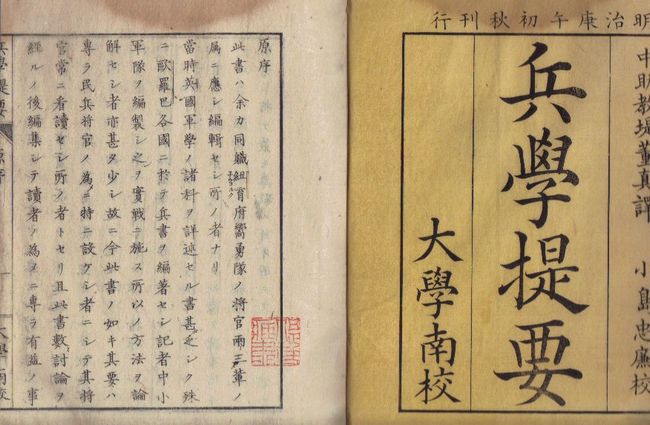 明治庚午初秋刊行
中助教堤董真譯
小島忠廉校
兵學提要
大學南校
原序
此書ハ余カ同職紐育府嚮勇隊ノ將官兩三輩ノ
属ニ應シ編輯セシ所ノ者ナリ
當時英國軍學ノ諸科ヲ詳述セル書甚乏シク殊
ニ歐羅巴各國ニ於テ兵書ヲ編著セシ記者中小
軍隊ヲ編製シ之ヲ實戰ニ施ス所以ノ方法ヲ論
解セシ者亦甚タ少シ故ニ今此書ノ如キ其要ハ
專ラ民兵將官ノ為ニ特ニ設ケシ者ニシテ其將
官常ニ看讀セシ所ノ者トセリ且此書數討論ヲ
經ルノ後編集シテ讀者ノ為メニ專ラ有益ノ事
兵學提要 原序
大學南校